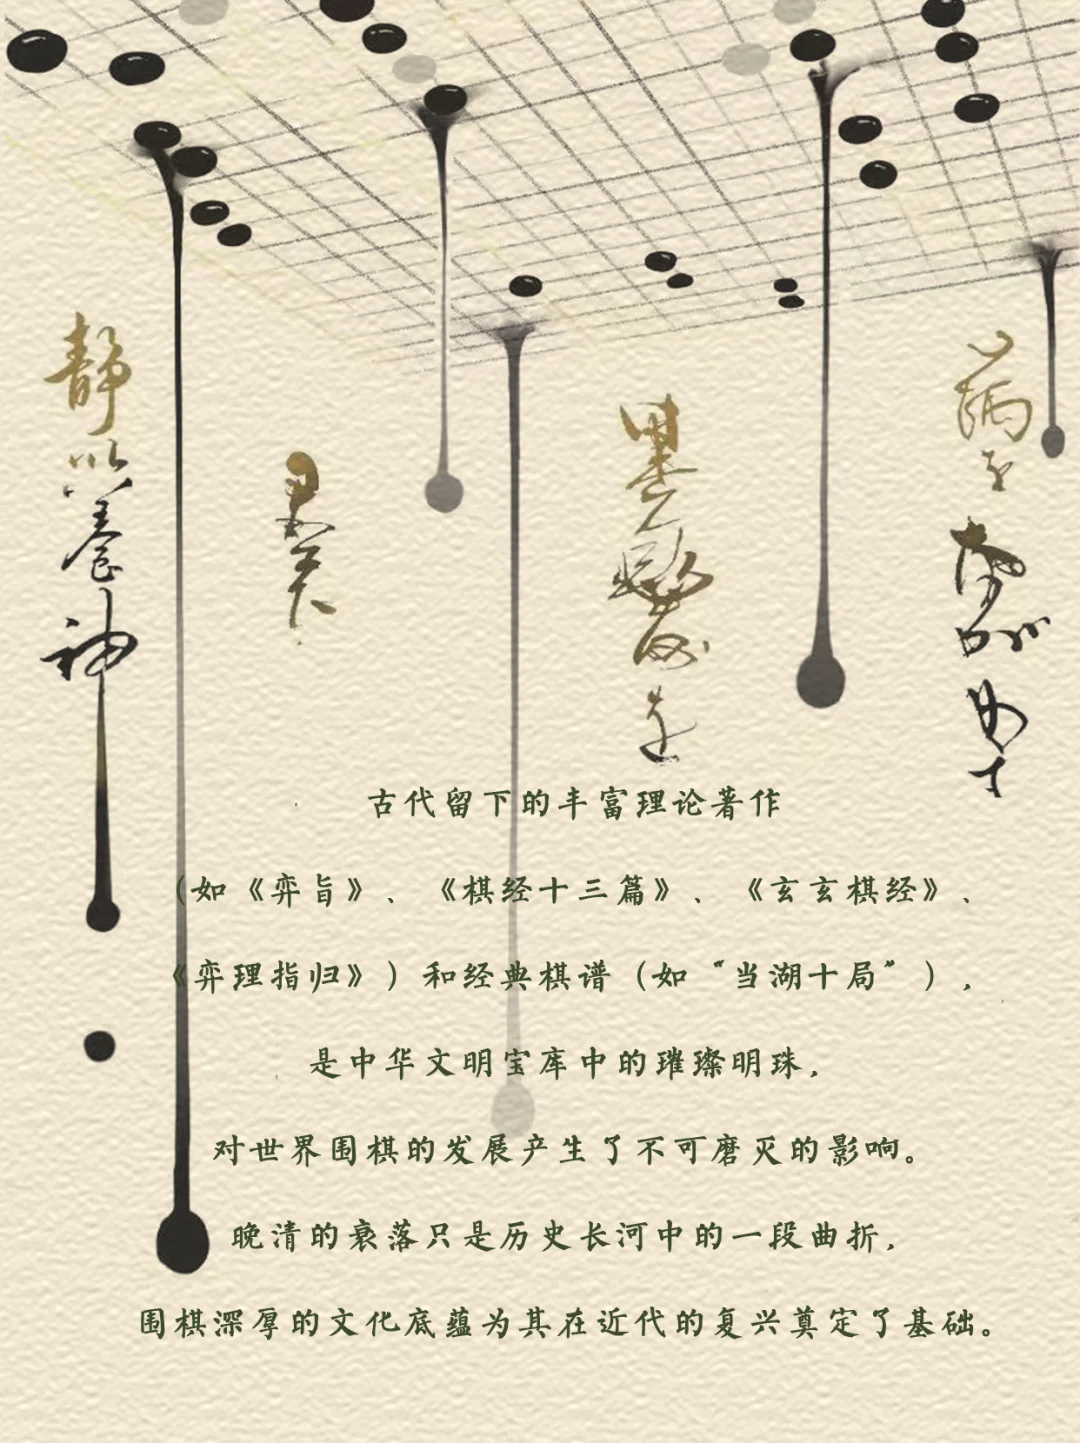 静以養神
古代留下的丰富理论著作
（如《弈旨》、《棋经十三篇》、《玄玄棋经》、
《弈理指归》）和经典棋谱（如“当湖十局”），
是中华文明宝库中的璀璨明珠，
对世界围棋的发展产生了不可磨灭的影响。
晚清的衰落只是历史长河中的一段曲折，
围棋深厚的文化底蕴为其在近代的复兴奠定了基础。